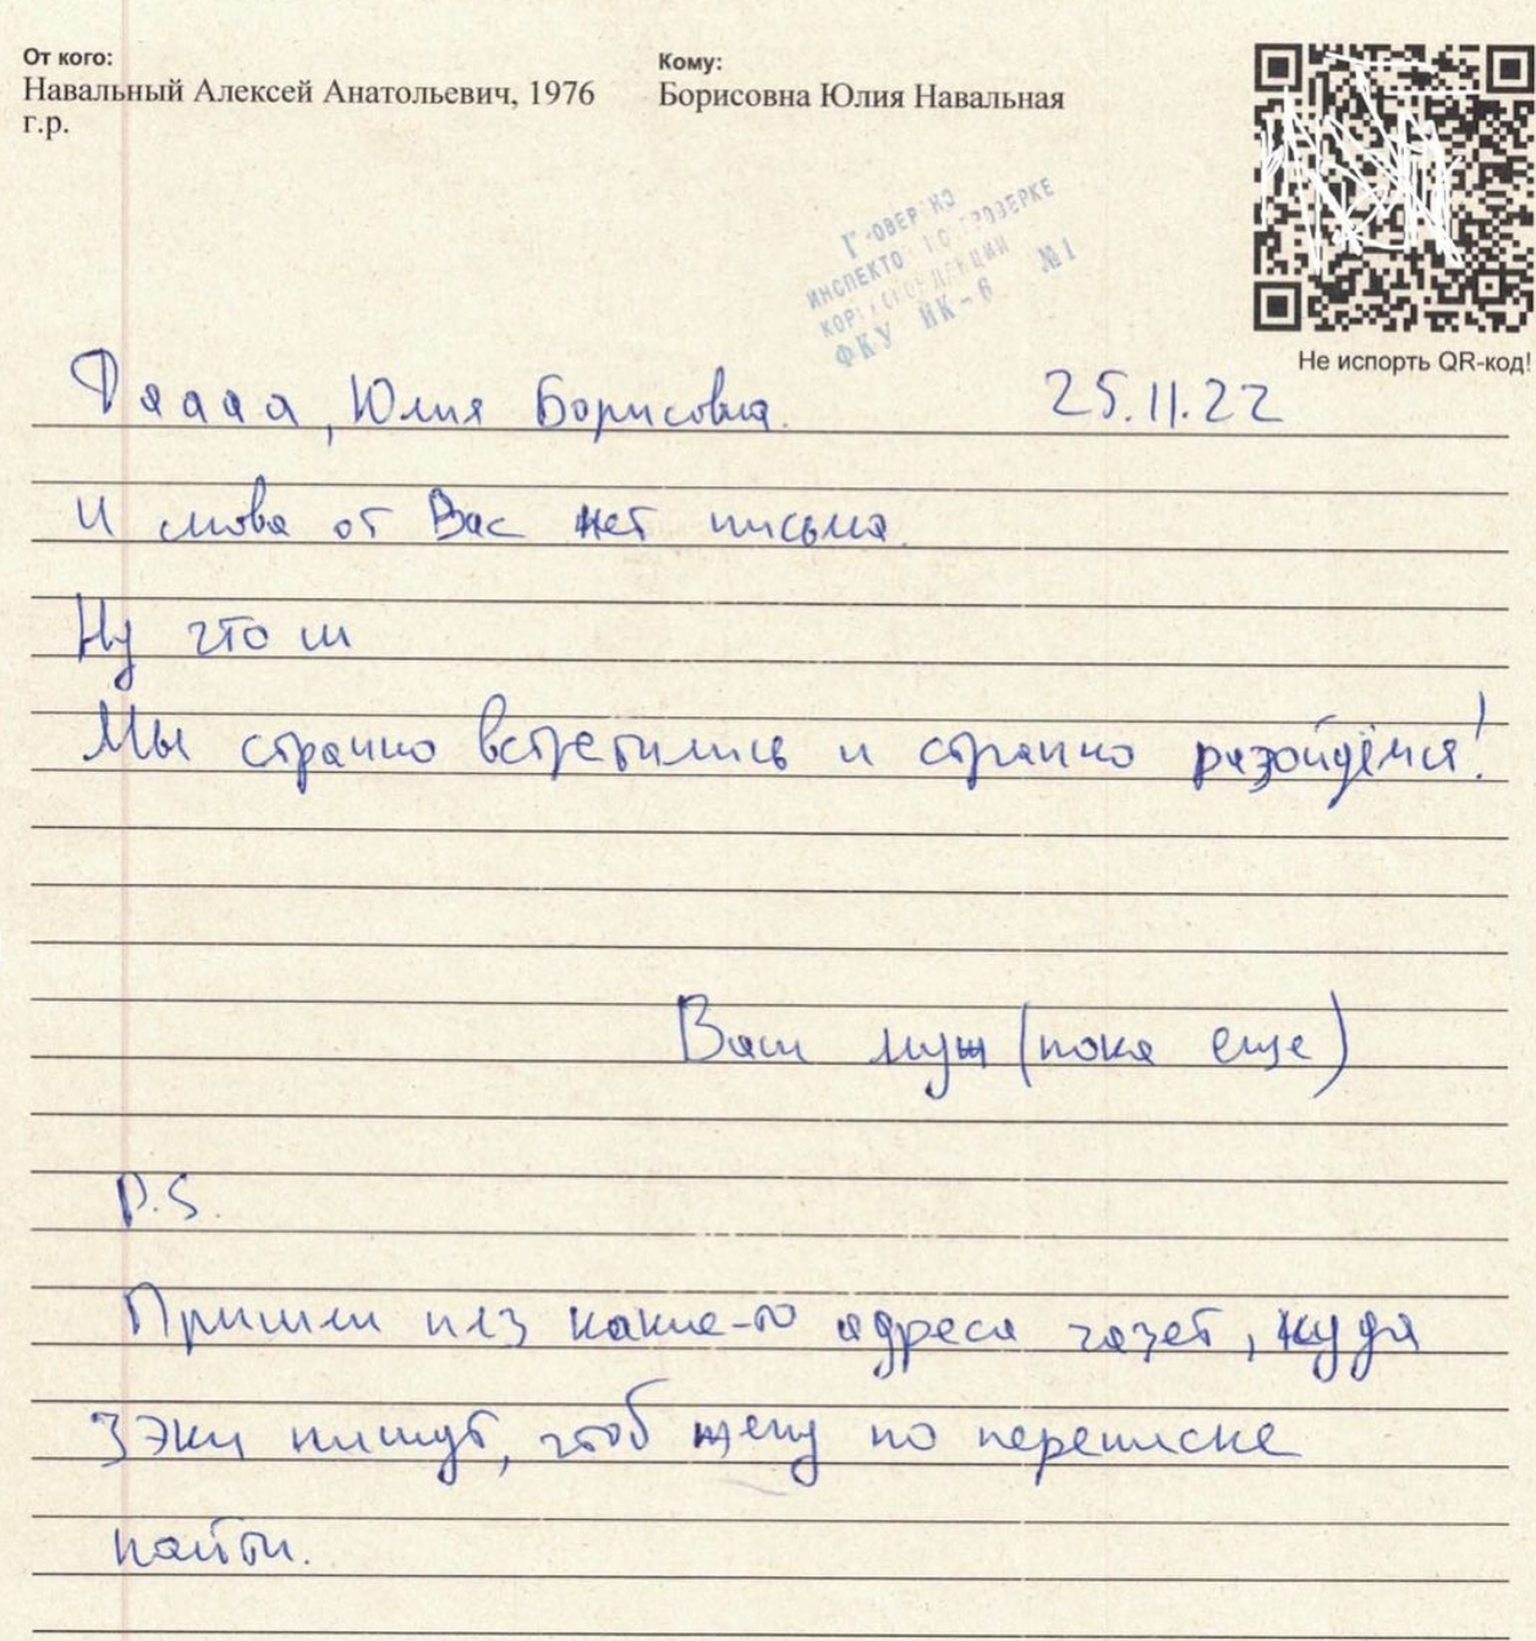 От кого:
Навальный Алексей Анатольевич, 1976
г.р.
Кому:
Борисовна Юлия Навальная
ПРОВЕРЕНО
ИНСПЕКТОР ПО ПРОВЕРКЕ
КОРРЕСПОНДЕНЦИИ
ФКУ ИК-6 №1
Не испорть QR-код!
Даааа, Юлия Борисовна. 25.11.22
И снова от Вас нет письма.
Ну что ш
Мы странно встретились и странно разойдёмся!
Ваш муж (пока еще)
P.S.
Пришли плз какие-то адреса газет, куда
зэки пишут, чтоб жену по переписке
найти.